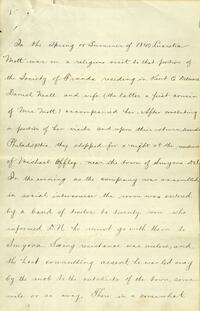 In the Spring or Summer of 1840 Lucretia
Mott was on a religious visit to that portion of
the Society of Friends residing in Kent Co Delaware
Daniel Neall and wife (the latter a first cousin
of Mrs Mott) accompanied her. After completing
a portion of her visits and upon their return towards
Philadelphia, they stopped for a night at the residence
of Michael Offley, near the town of Smyrna Del.
In the evening as the company was assembled
in social intercourse the room was entered
by a band of twelve to twenty men who
informed D.N. he must go with them to
Smyrna. Seeing resistance was useless, and
the host counselling assent he was led away
by the mob to the outskirts of the town, some
mile or so away. There in a somewhat